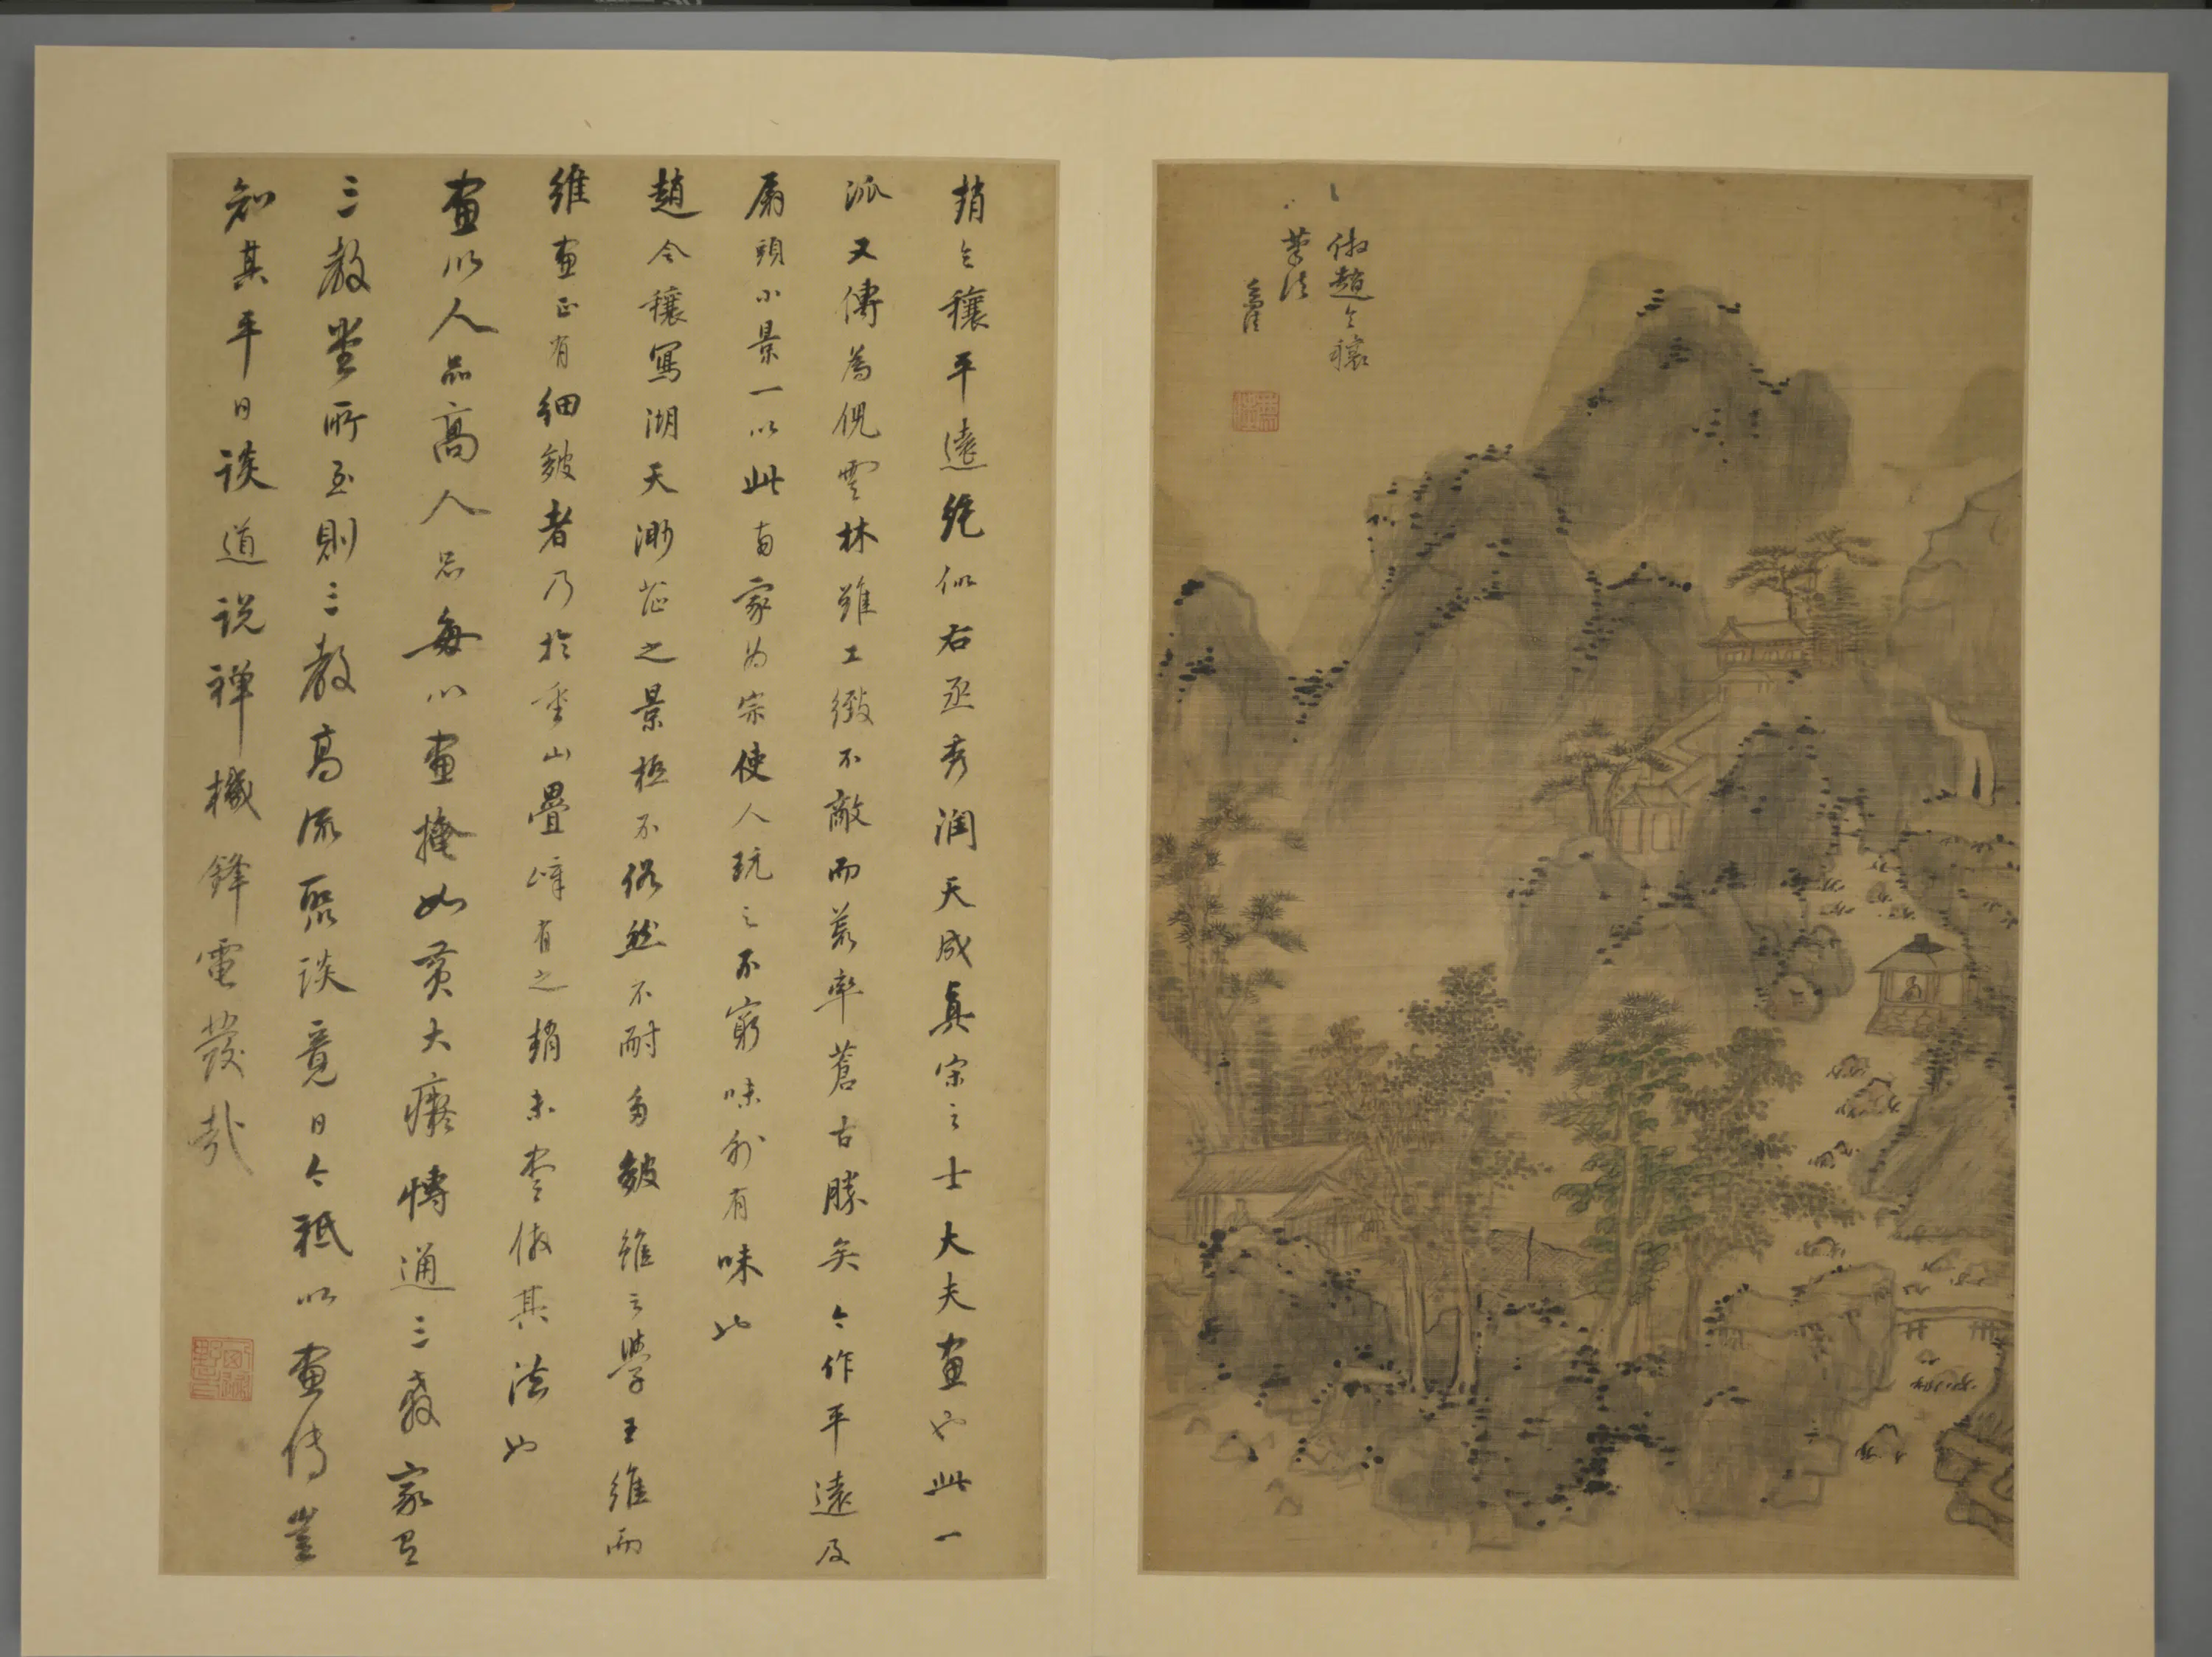 倣趙令穰
筆法
趙令穰平遠絕似右丞秀潤天成真宋之士大夫畫也此一
派又傳為倪雲林雖工緻不敵而荒率蒼古勝矣今作平遠及
扇頭小景一以此兩家為宗使人玩之不窮味外有味也
趙令穰寫湖天渺茫之景極不俗然不耐多皴雖云學王維而
維畫正有細皴者乃於重山疊嶂有之趙未盡倣其法也
畫以人品高人品每以畫掩如黃大癡博通三教家有
三教堂所至則三教高流聚談竟日今祇以畫傳豈
知其平日談道說禪機鋒電發哉